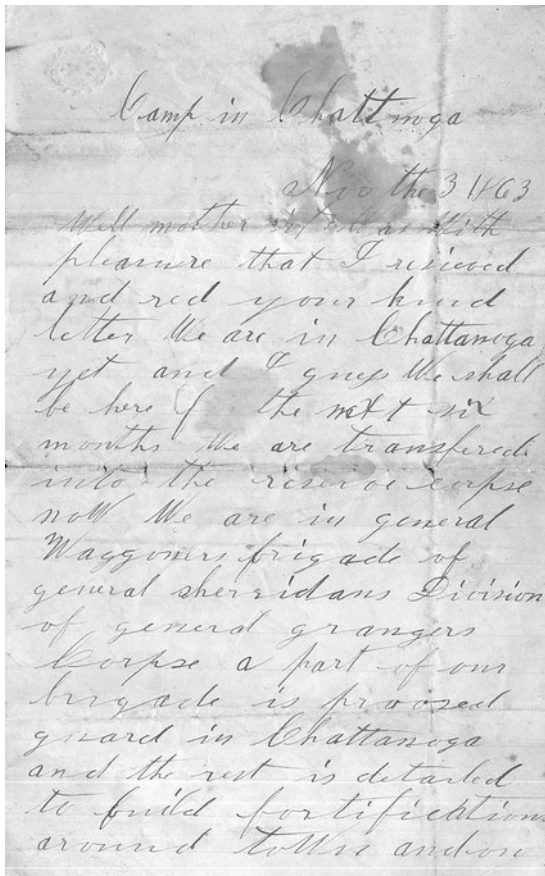 Camp in Chattnoga
Nov the 3 1863
Well mother it was with
pleasure that I resieved
and red your kind
letter We are in Chattanoga
yet and I guess We shall
be here the next six
months We are transfered
into the reserve corpse
now We are in general
Waggoners brigade of
general sherridans Division
of general grangers
Corpse a part of our
brigade is provsed
guard in Chattanoga
and the rest is detailed
to build fortifications
around towne and on